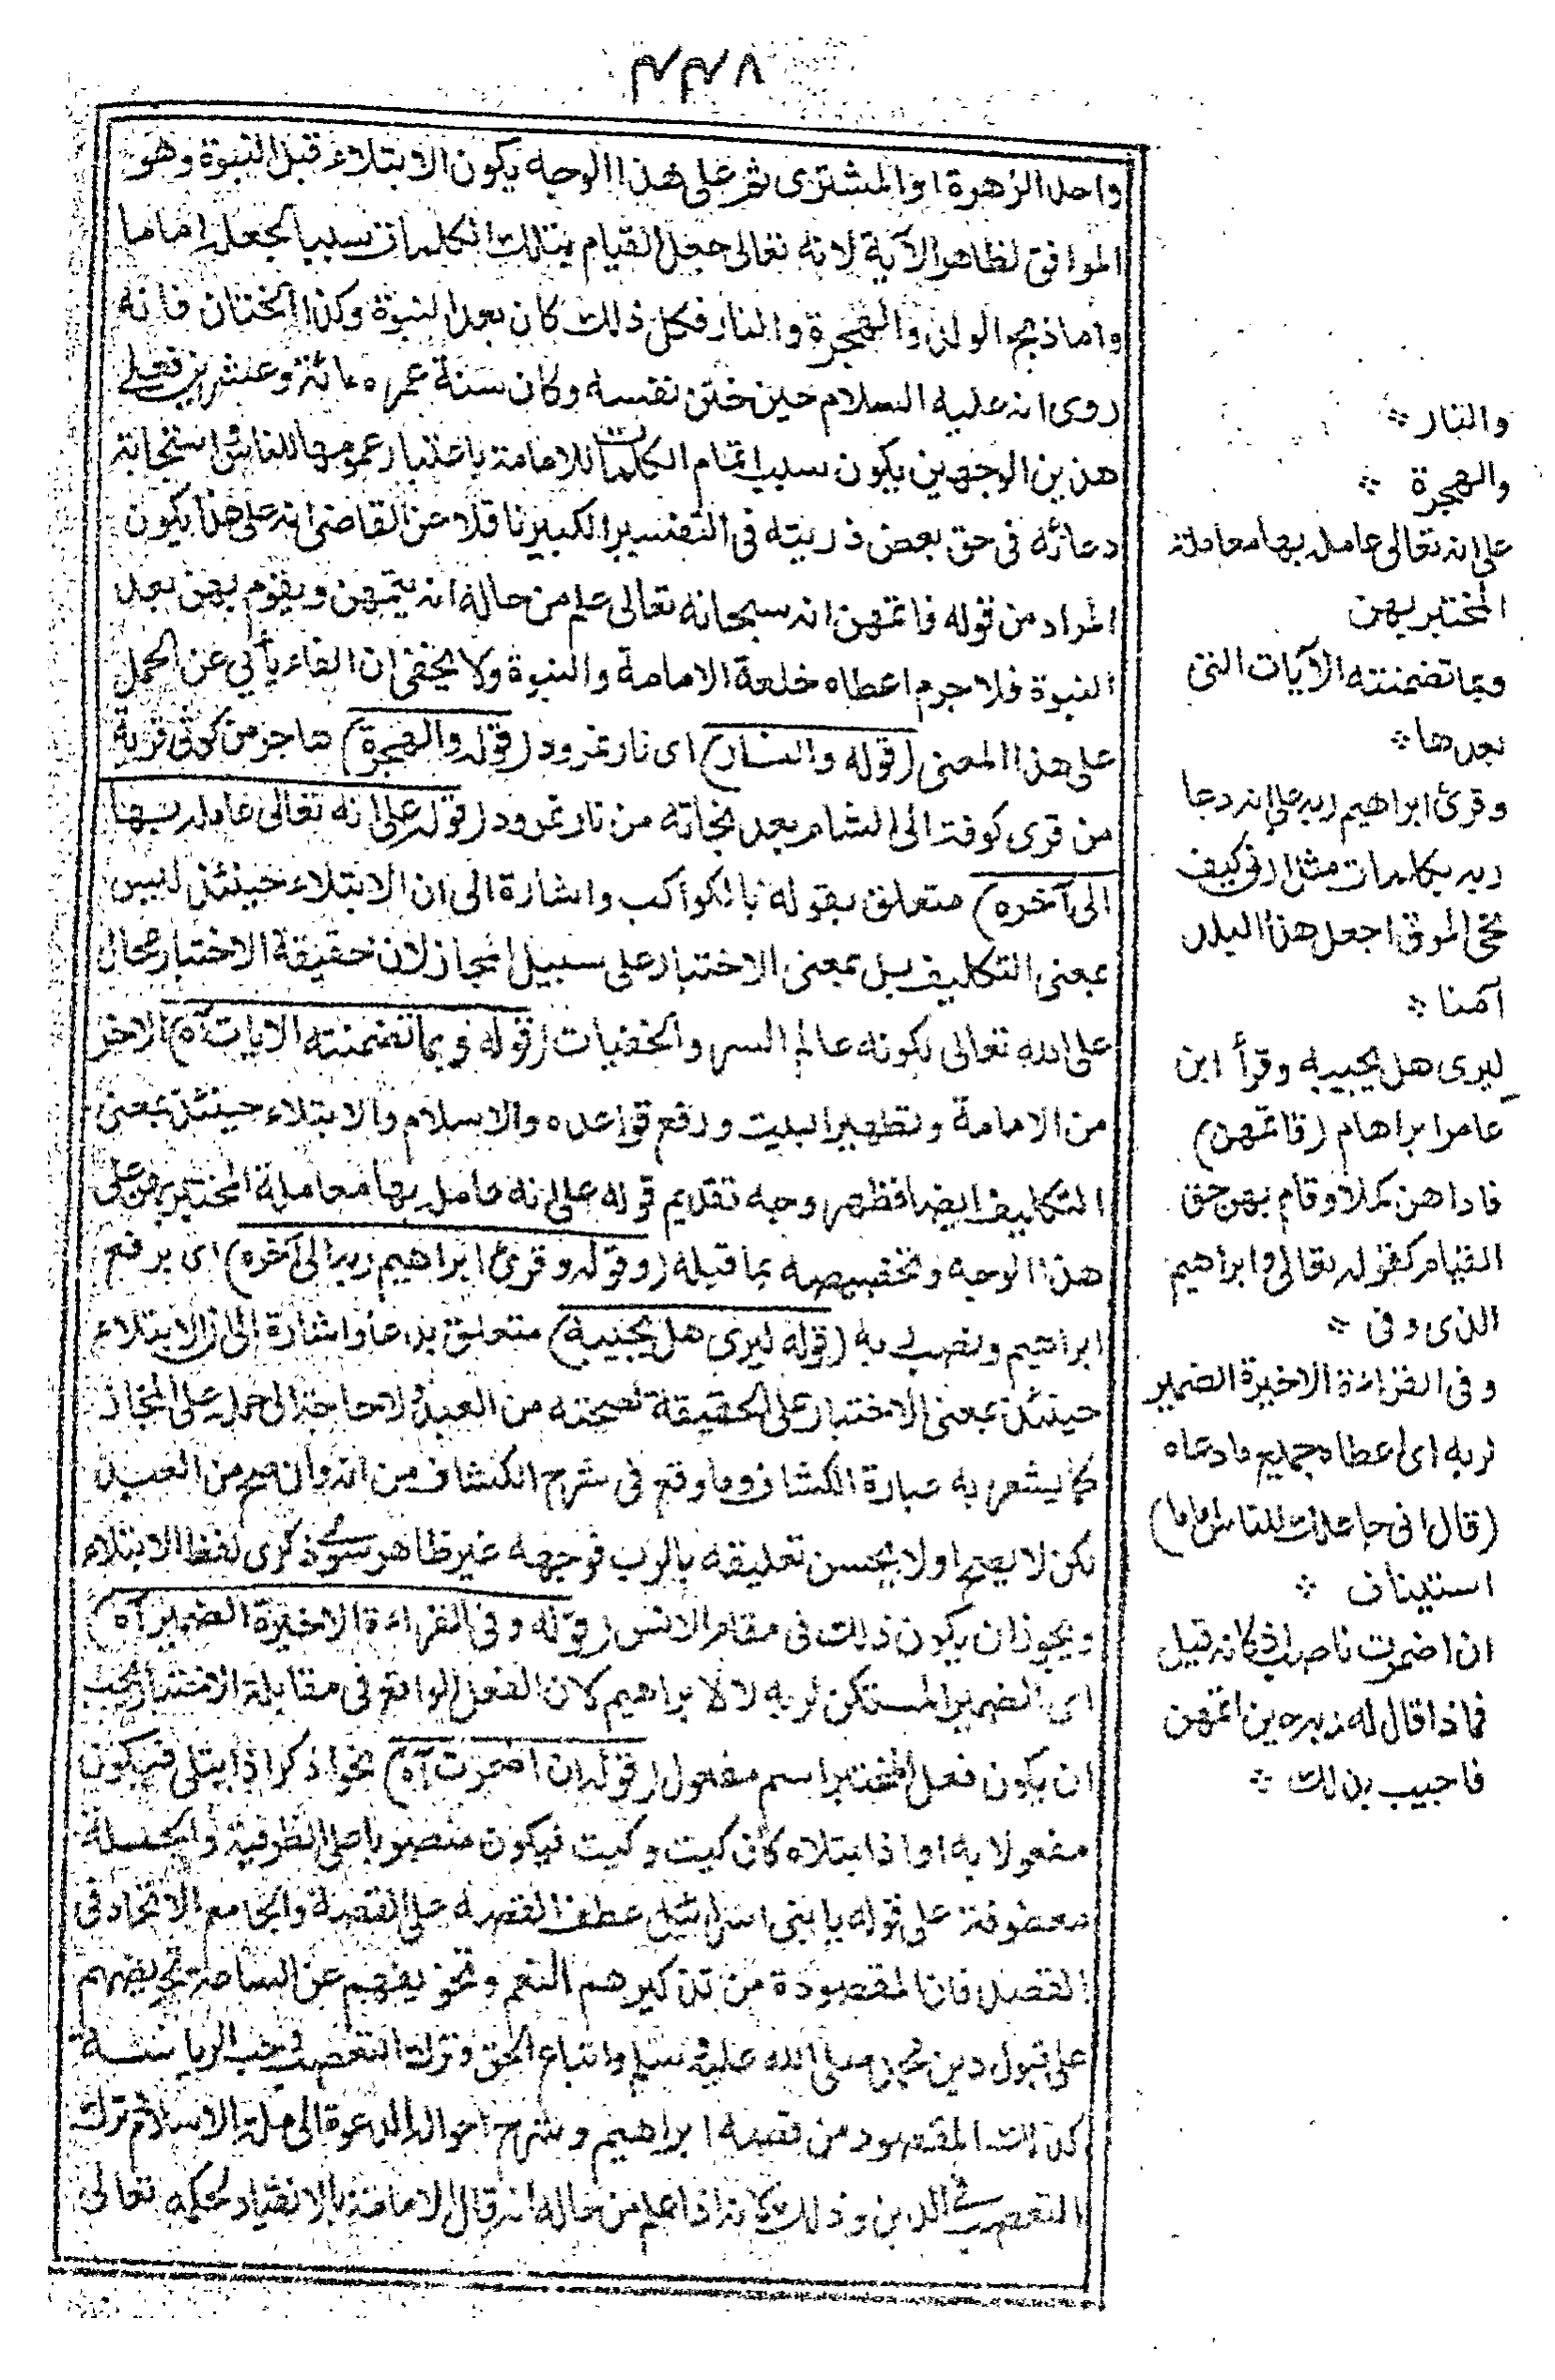 ٤٤٨
واحد الزهرة او المشترى ثم على هذا الوجه يكون الابتلاء قبل النبوة وهو
الموافق لظاهر الآية لانه تعالى جعل القيام بتلك الكلمات سببا لجعله اماما
واما ذبح الولد والهجرة والنار فكل ذلك كان بعد النبوة وكذا الختان فانه
روى انه عليه السلام حين ختن نفسه وكان سنة عمره مائة وعشرين فعلى
هذين الوجهين يكون سبب اتمام الكلمات للامامة باعتبار عمومها للناس استجابة
دعائه فى حق بعض ذريته فى التفسير الكبير ناقلا عن القاضى انه على هذا يكون
المراد من قوله فاتمهن انه سبحانه تعالى علم من حاله انه يتمهن ويقوم بهن بعد
النبوة فلا جرم اعطاه خلعة الامامة والنبوة ولا يخفى ان الفاء يأبى عن الحمل
على هذا المعنى (قوله والنار) اى نار نمرود (قوله والهجرة) هاجر من كوثى قرية
من قرى كوفة الى الشام بعد نجاته من نار نمرود (قوله على انه تعالى عامله بها
الى آخره) متعلق بقوله بالكواكب واشارة الى ان الابتلاء حينئذ ليس
بمعنى التكليف بل بمعنى الاختبار على سبيل المجاز لان حقيقة الاختبار محال
على الله تعالى لكونه عالم السر والخفيات (قوله وبما تضمنته الايات آه) الاخر
من الامامة وتطهير البيت ورفع قواعده والاسلام والابتلاء حينئذ بمعنى
التكليف ايضا فظهر وجه تقديم قوله على انه عامل بها معاملة المختبر بهن على
هذا الوجه وتخصيصه بما قبله (وقوله وقرئ ابراهيم ربه الى آخره) اى برفع
ابراهيم ونصب ربه (قوله ليرى هل يجيبه) متعلق بدعا واشارة الى ان الابتلاء
حينئذ بمعنى الاختبار على الحقيقة لصحته من العبد لا حاجة الى حمله على المجاز
كما يشعر به عبارة الكشاف وما وقع فى شرح الكشاف من انه وان صح من العبد
لكن لا يصح او لا يحسن تعليقه بالرب فوجهه غير ظاهر سوى ذكرى لفظ الابتلاء
ويجوز ان يكون ذلك فى مقام الانس (قوله وفى القراءة الاخيرة الضمير آه)
اى الضمير المستكن لربه لا لابراهيم لان الفعل الواقع فى مقابلة الاختبار يجب
ان يكون فعل المختبر اسم مفعول (قوله ان اضمرت آه) نحو اذكر اذ ابتلى فيكون
مفعولا به او اذ ابتلاه كان كيت وكيت فيكون منصوبا على الظرفية والجملة
معطوفة على قوله يا بنى اسرائيل عطف القصة على القصة والجامع الاتحاد فى
القصد فان المقصودة من تذكيرهم النعم وتخويفهم عن الساعة تحريضهم
على قبول دين محمد صلى الله عليه وسلم واتباع الحق وترك التعصب وحب الرياسة
كذلك المقصود من قصة ابراهيم وشرح احواله الدعوة الى ملة الاسلام وترك
التعصب فى الدين وذلك لانه اذا علم من حاله انه قال الامامة بالانقياد لحكمه تعالى
والنار
والهجرة
على انه تعالى عامله بها معاملة
المختبر بهن
وبما تضمنته الآيات التى
بعدها
وقرئ ابراهيم ربه على انه دعا
ربه بكلمات مثل ارنى كيف
تحى الموتى اجعل هذا البلد
آمنا
ليرى هل يجيبه وقرأ ابن
عامر ابراهام (فاتمهن)
فاداهن كملا وقام بهن حق
القيام كقوله تعالى وابراهيم
الذى وفى
وفى القراءة الاخيرة الضمير
لربه اى اعطاه جميع ما دعاه
(قال انى جاعلك للناس اماما)
استيناف
ان اضمرت ناصب اذ كانه قيل
فماذا قال له ربه حين اتمهن
فاجيب بذلك